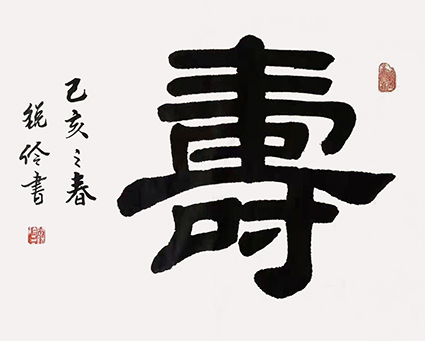 壽
己亥之春
锐伶書